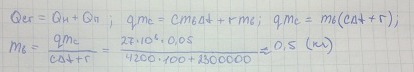 Qсг = Qн + Qп ; qmс = cmвΔt + rmв; qmс = mв(cΔt + r);
mв = qmс / cΔt + r = 27·10⁶·0,05 / 4200·100 + 2300000 ≈ 0,5 (кг)